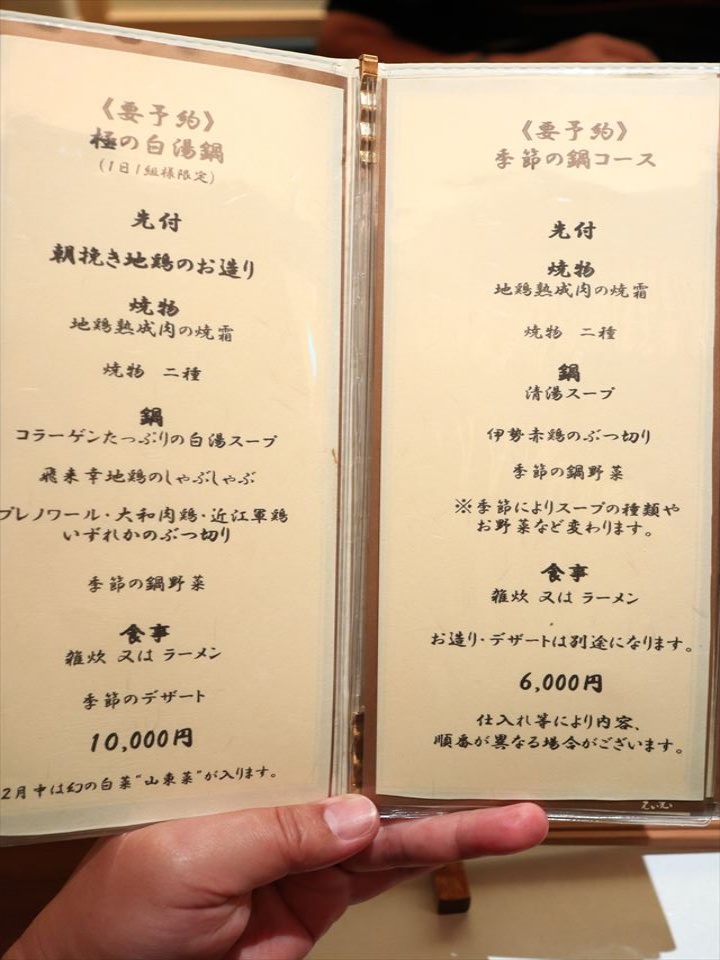 《要予約》
極の白湯鍋
(1日1組様限定)
先付
朝挽き地鶏のお造り
焼物
地鶏熟成肉の焼霜
焼物 二種
鍋
コラーゲンたっぷりの白湯スープ
飛来幸地鶏のしゃぶしゃぶ
プレノワール・大和肉鶏・近江軍鶏
いずれかのぶつ切り
季節の鍋野菜
食事
雑炊 又は ラーメン
季節のデザート
10,000円
2月中は幻の白菜"山東菜"が入ります。
《要予約》
季節の鍋コース
先付
焼物
地鶏熟成肉の焼霜
焼物 二種
鍋
清湯スープ
伊勢赤鶏のぶつ切り
季節の鍋野菜
※季節によりスープの種類や
お野菜など変わります。
食事
雑炊 又は ラーメン
お造り・デザートは別途になります。
6,000円
仕入れ等により内容、
順番が異なる場合がございます。